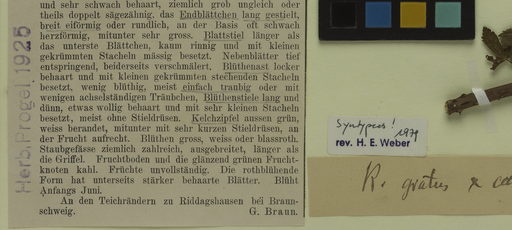 und sehr schwach behaart, ziemlich grob ungleich oder
theils doppelt sägezähnig, das Endblättchen lang gestielt,
breit eiförmig oder rundlich, an der Basis oft schwach
herzförmig, mitunter sehr gross. Blattstiel länger als
das unterste Blättchen, kaum rinnig und mit kleinen
gekrümmten Stacheln mässig besetzt. Nebenblätter tief
entspringend, beiderseits verschmälert. Blüthenast locker
behaart und mit kleinen gekrümmten stechenden Stacheln
besetzt, wenig blüthig, meist einfach traubig oder mit
wenigen achselständigen Träubchen, Blüthenstiele lang und
dünn, etwas wollig behaart und mit sehr kleinen Stacheln
besetzt, meist ohne Stieldrüsen. Kelchzipfel aussen grün,
weiss berandet, mitunter mit sehr kurzen Stieldrüsen, an
der Frucht aufrecht. Blüthen gross, weiss oder blassroth.
Staubgefässe ziemlich zahlreich, ausgebreitet, länger als
die Griffel. Fruchtboden und die glänzend grünen Frucht-
knoten kahl. Früchte unvollständig. Die rothblühende
Form hat unterseits stärker behaarte Blätter. Blüht
Anfangs Juni.
An den Teichrändern zu Riddagshausen bei Braun-
schweig. G. Braun.
Herb. Progel, 1925
Syntypus! 1979
rev. H. E. Weber
R. gratus x